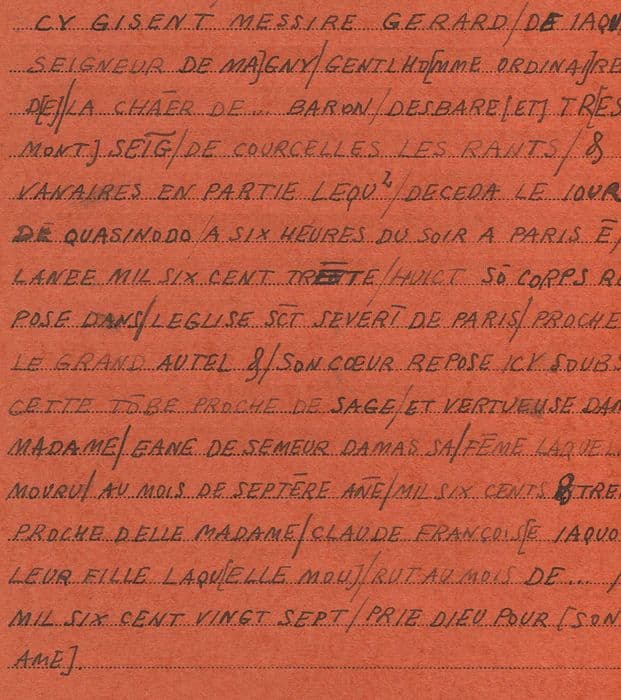 CY GISENT MESSIRE GERARD/DE IAQU
SEIGNEUR DE MA]GNY/GENTLHO[MME ORDINAI]RE
D[E]/LA CHĀER DE... BARON/DESBARE[ET] TR[ES
MONT] SEĪG/DE COURCELLES LES RANTS/&
VANAIRES EN PARTIE LEQU²/DECEDA LE IOUR
DE QUASINODO/A SIX HEURES DU SOIR A PARIS Ē,
LANEE MIL SIX CENT TRĒTE/HUICT SŌ CORPS R
POSE DANS/LEGLISE SC̄T SEVERĪ DE PARIS/PROCHE
LE GRAND AUTEL &/SON CŒUR REPOSE ICY SOUBS
CETTE TŌBE PROCHE DE SAGE/ET VERTUEUSE DAM
MADAME/EANE DE SEMEUR DAMAS SA/FĒME LAQUEL
MOURU/AU MOIS DE SEPTĒRE AÑE/MIL SIX CENTS & TRE
PROCHE DELLE MADAME/CLAUDE FRANÇOIS[E IAQUO
LEUR FILLE LAQU[ELLE MOU]/RUT AU MOIS DE... /
MIL SIX CENT VINGT SEPT/PRIE DIEU POUR [SON
AME].